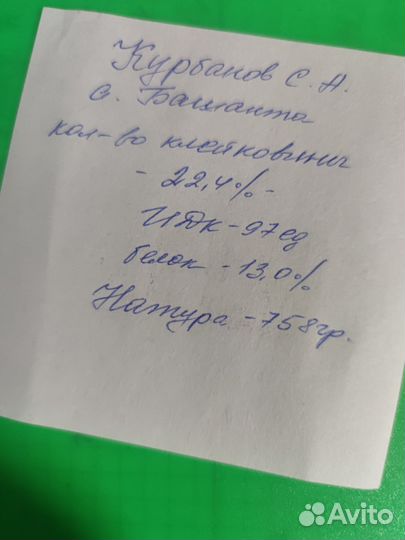 Курбанов С. А.
с. Башанта
кол-во клейковины
- 22,4% -
ИДК - 97 ед
белок - 13,0%
Натура - 758 гр.
Avito